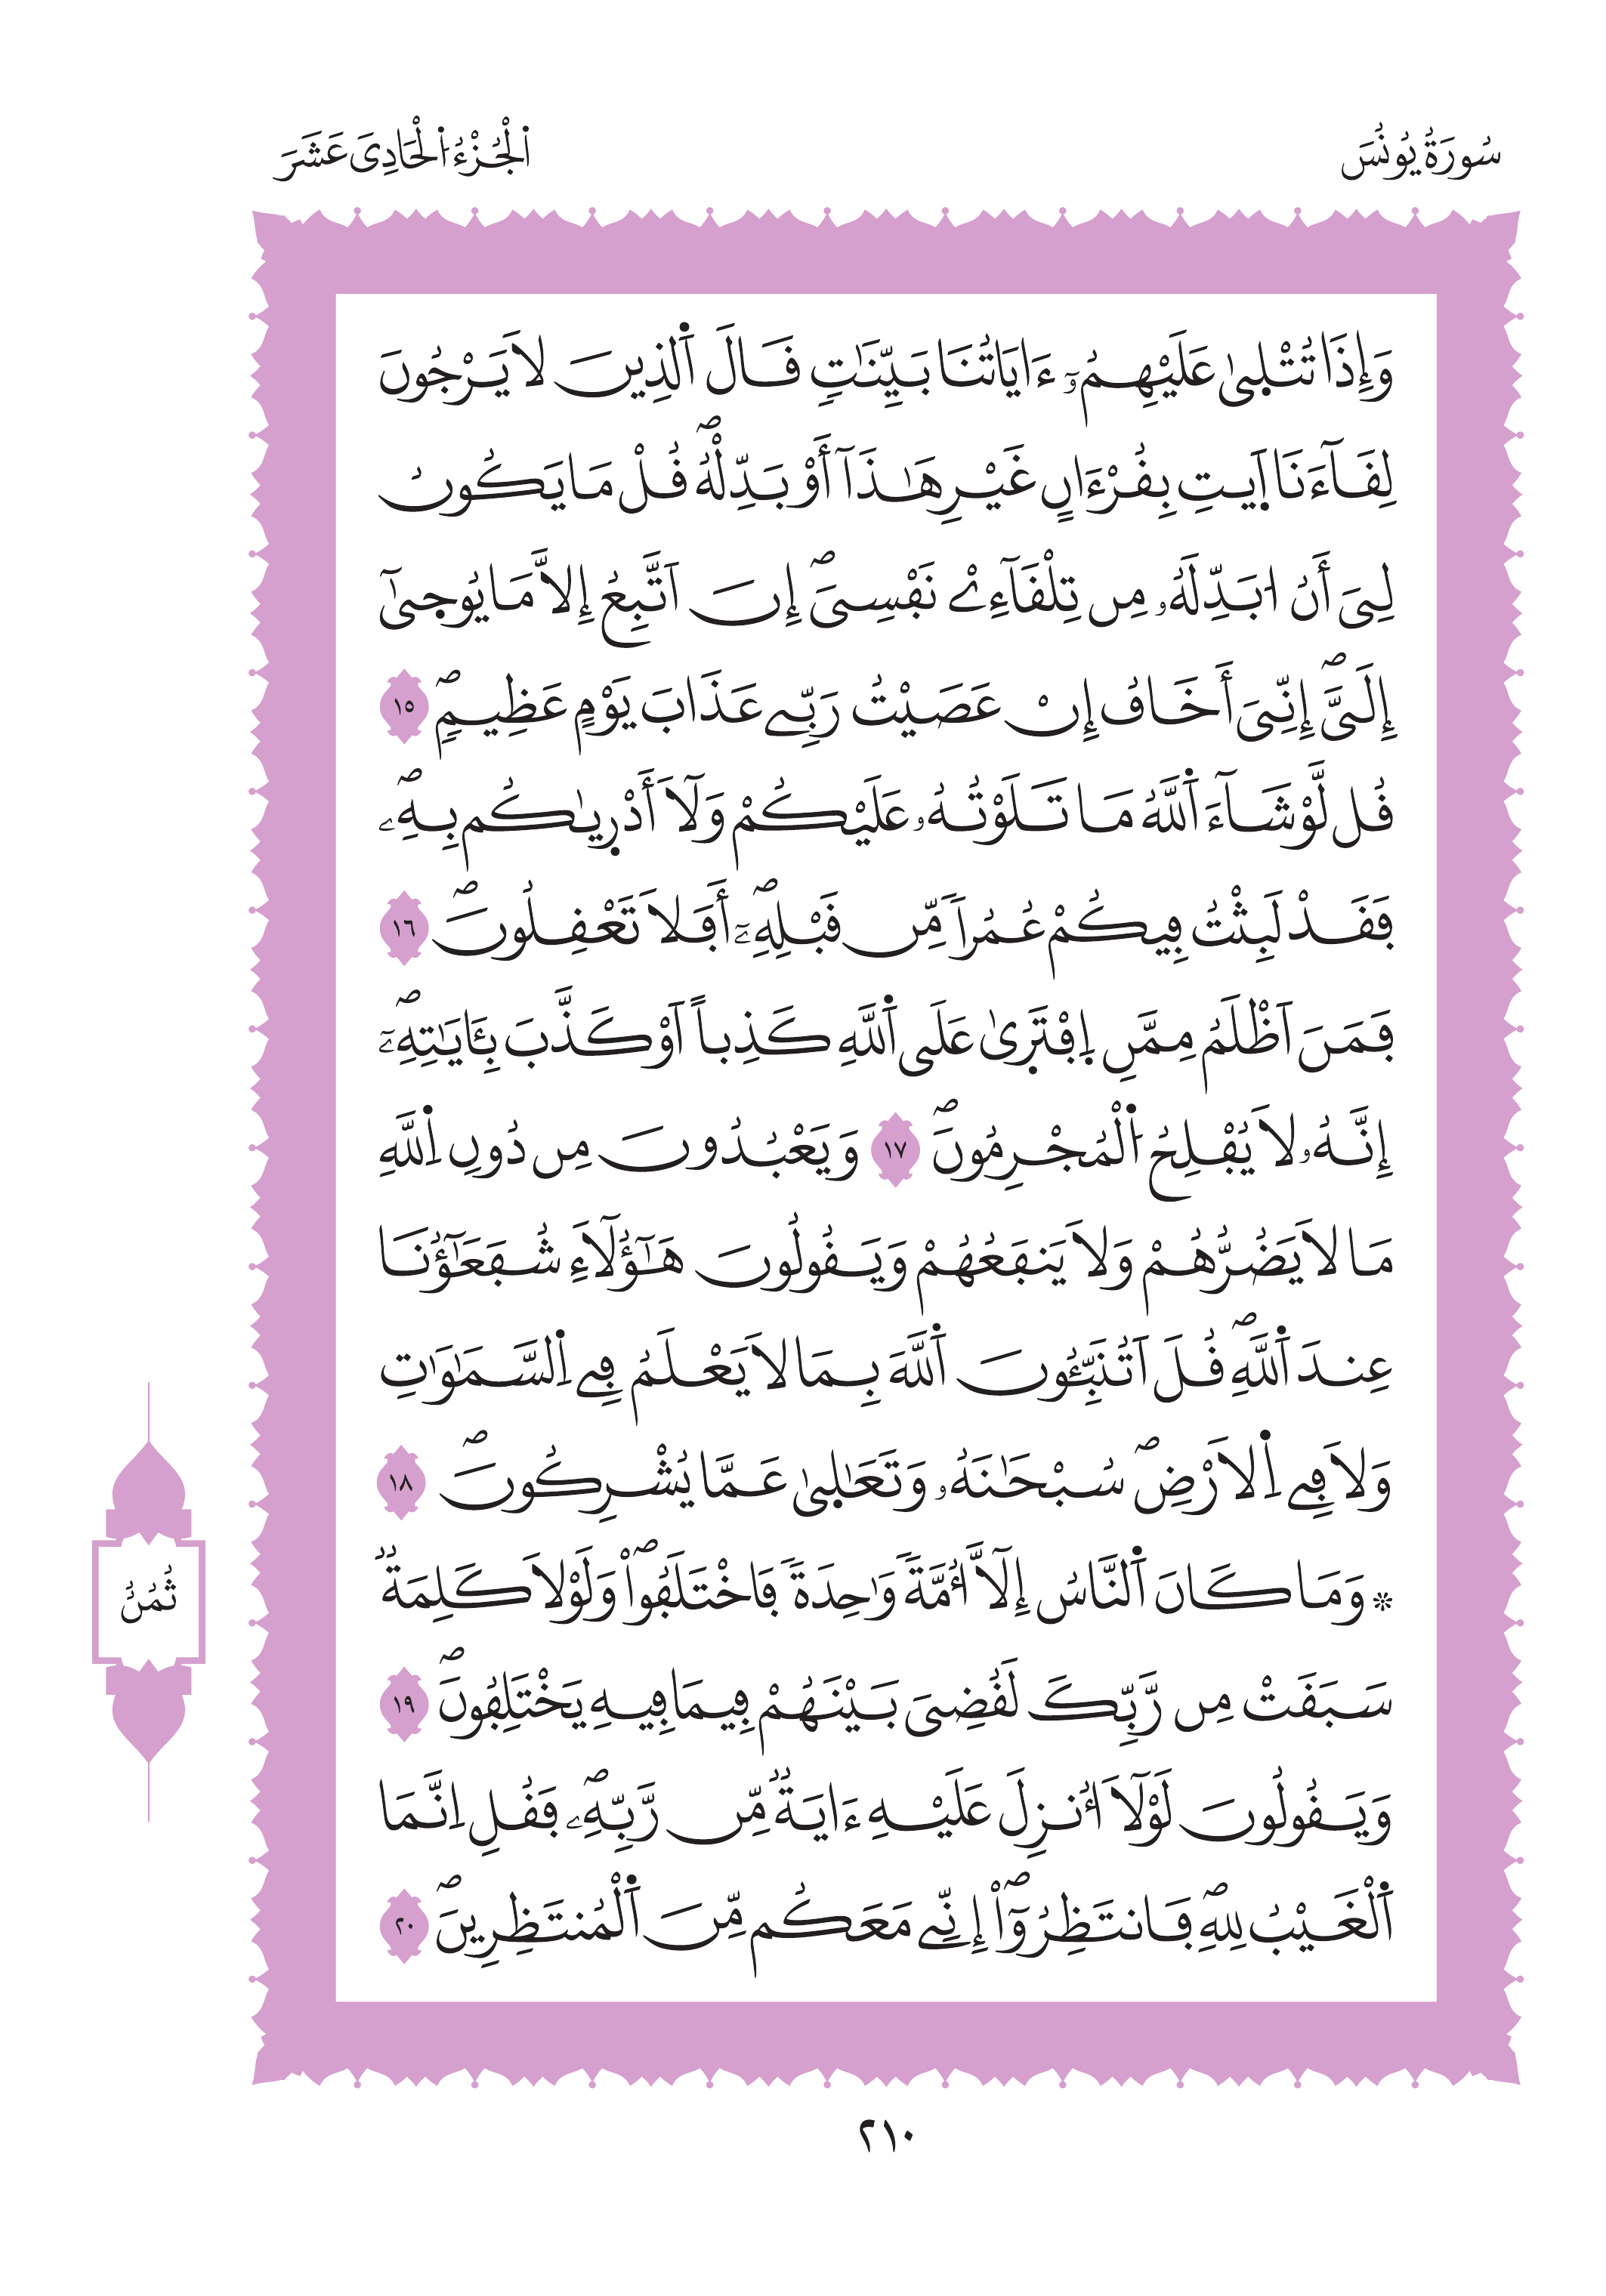 سُورَةُ يُونُسَ
اَ۬لْجُزْءُ اُ۬لْحَادِيَ عَشَرَ
وَإِذَا تُتْل۪يٰ عَلَيْهِمُۥٓ ءَايَاتُنَا بَيِّنَٰتٖ قَالَ اَ۬لذِينَ لَا يَرْجُونَ
لِقَآءَنَا اَ۪يتِ بِقُرْءَانٍ غَيْرِ هَٰذَآ أَوْ بَدِّلْهُۖ قُلْ مَا يَكُونُ
لِيَ أَنُ ا۟بَدِّلَهُۥ مِن تِلْقَآءِےْ نَفْسِيَۖ إِنَ اَتَّبِعُ إِلَّا مَا يُوح۪يٰٓ
إِلَيَّۖ إِنِّيَ أَخَافُ إِنْ عَصَيْتُ رَبِّے عَذَابَ يَوْمٍ عَظِيمٖۖ ١٥
قُل لَّوْ شَآءَ اَ۬للَّهُ مَا تَلَوْتُهُۥ عَلَيْكُمْ وَلَآ أَدْر۪يٰكُم بِهِۦۖ
فَقَدْ لَبِثْتُ فِيكُمْ عُمُراٗ مِّن قَبْلِهِۦٓۖ أَفَلَا تَعْقِلُونَۖ ١٦
فَمَنَ اَظْلَمُ مِمَّنِ اِ۪فْتَر۪يٰ عَلَي اَ۬للَّهِ كَذِباً اَوْ كَذَّبَ بِـَٔايَٰتِهِۦٓۖ
إِنَّهُۥ لَا يُفْلِحُ اُ۬لْمُجْرِمُونَۖ ١٧ وَيَعْبُدُونَ مِن دُونِ اِ۬للَّهِ
مَا لَا يَضُرُّهُمْ وَلَا يَنفَعُهُمْ وَيَقُولُونَ هَٰٓؤُلَآءِ شُفَعَٰٓؤُنَا
عِندَ اَ۬للَّهِۖ قُلَ اَتُنَبِّـُٔونَ اَ۬للَّهَ بِمَا لَا يَعْلَمُ فِے اِ۬لسَّمَٰوَٰتِ
وَلَا فِے اِ۬لَارْضِۖ سُبْحَٰنَهُۥ وَتَعَٰل۪يٰ عَمَّا يُشْرِكُونَۖ ١٨
۞ وَمَا كَانَ اَ۬لنَّاسُ إِلَّآ أُمَّةٗ وَٰحِدَةٗ فَاخْتَلَفُواْۖ وَلَوْلَا كَلِمَةٞ
سَبَقَتْ مِن رَّبِّكَ لَقُضِيَ بَيْنَهُمْ فِيمَا فِيهِ يَخْتَلِفُونَۖ ١٩
وَيَقُولُونَ لَوْلَآ أُنزِلَ عَلَيْهِ ءَايَةٞ مِّن رَّبِّهِۦۖ فَقُلِ اِنَّمَا
اَ۬لْغَيْبُ لِلهِۖ فَانتَظِرُوٓاْۖ إِنِّے مَعَكُم مِّنَ اَ۬لْمُنتَظِرِينَۖ ٢٠
ثُمُنُ
٢١٠